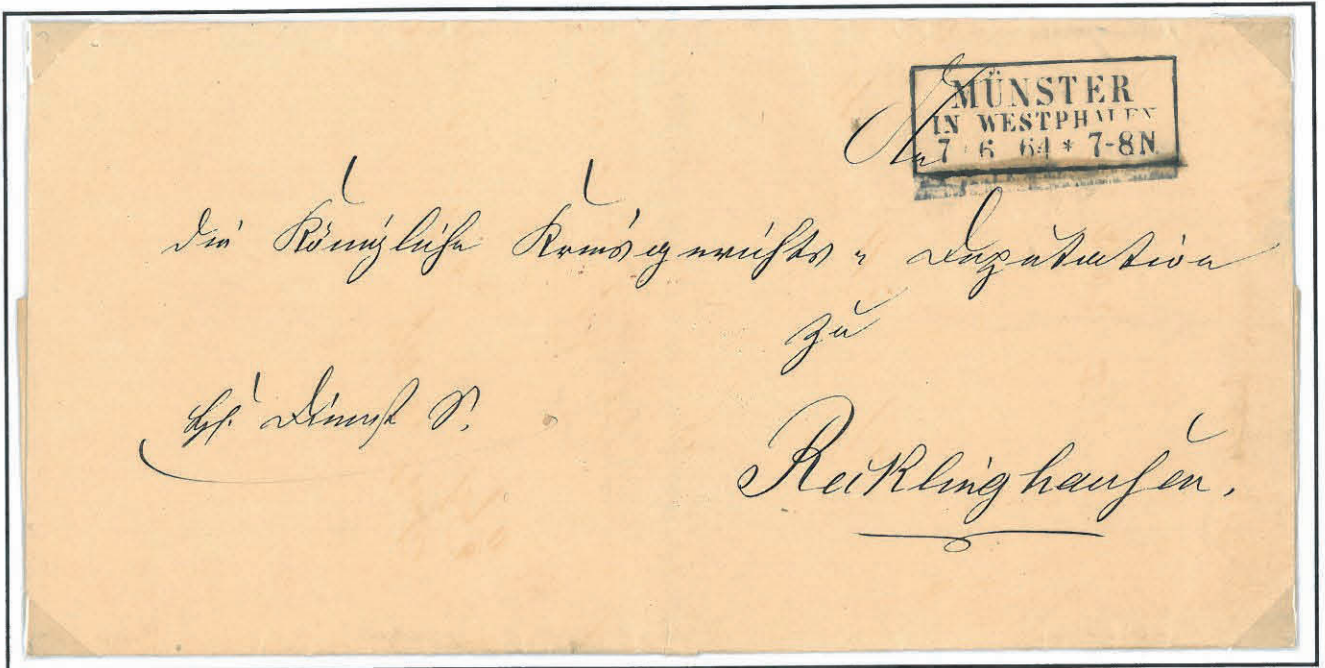 MÜNSTER
IN WESTPHALEN
7 6 64 * 7-8N
An
die Königliche Kreisgerichts= Deputation
zu
Recklinghausen.
Dienst S.